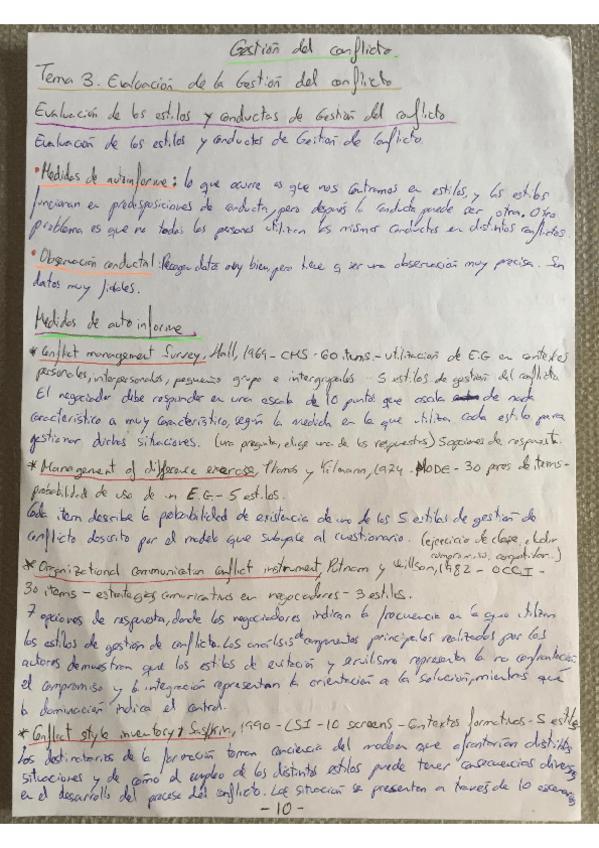 Gestión del conflicto
Tema 3. Evaluación de la Gestión del conflicto
Evaluación de los estilos y conductas de Gestión del conflicto
Evaluación de los estilos y conductas de Gestión de Conflicto.
• Medidas de autoinforme: lo que ocurre es que nos centramos en estilos, y los estilos
funcionan en predisposiciones de conducta, pero después la conducta puede ser otra. Otro
problema es que no todas las personas utilizan las mismas conductas en distintos conflictos
• Observación conductual: Recoger datos muy bien, pero tiene q ser una observación muy precisa. Son
datos muy fiables.
Medidas de autoinforme
* Conflict management Survey, Hall, 1969 - CMS - 60 items. - utilización de E.G en contextos
personales, interpersonales, pequeño grupo e intergrupales - 5 estilos de gestión del conflicto
El negociador debe responder en una escala de 10 puntos que oscila de nada
característico a muy característico, según la medida en la que utiliza cada estilo para
gestionar dichas situaciones. (una pregunta, elige una de las respuestas) 5 opciones de respuesta.
* Management of difference exercise, Thomas y Kilmann, 1974 - MODE - 30 pares de items -
probabilidad de uso de un E.G - 5 estilos.
Cada item describe la probabilidad de existencia de uno de los 5 estilos de gestión de
conflicto descrito por el modelo que subyace al cuestionario. (ejercicio de clase,
compromiso, competidor..)
* Organizational communication conflict instrument, Putnam y Willson, 1982 - OCCI -
30 items - estrategias comunicativas en negociadores - 3 estilos.
7 opciones de respuesta, donde los negociadores indican la frecuencia en la que utilizan
los estilos de gestión de conflicto. Los análisis de componentes principales realizados por los
autores demuestran que los estilos de evitación y servilismo representan la no confrontación
el compromiso y la integración representan la orientación a la solución, mientras que
la dominación indica el control.
* Conflict style inventory, Saskin, 1990 - CSI - 10 screens - Contextos formativos - 5 estilos
Los destinatarios de la formación toman conciencia del modo en que afrontarían distintas
situaciones y de cómo el empleo de los distintos estilos puede tener consecuencias diversas
en el desarrollo del proceso del conflicto. Las situación se presentan a través de 10 escenarios
- 10 -